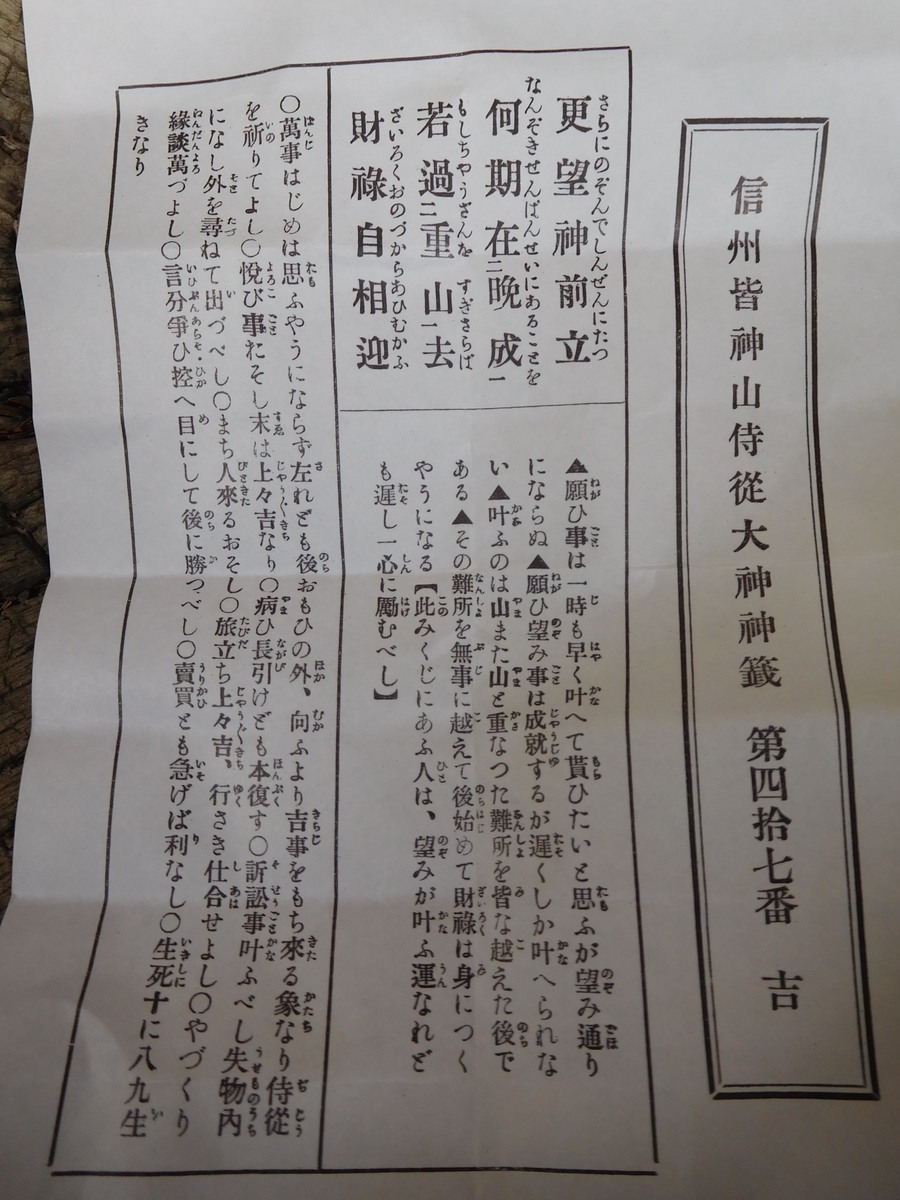 信州皆神山侍從大神神籤　第四拾七番　吉
更望神前立
さらにのぞんでしんぜんにたつ
何期在二晩成一
なんぞきせんばんせいにあることを
若過二重山一去
もしちやうざんを すぎさらば
財祿自相迎
ざいろくおのづからあひむかふ
▲願ひ事は一時も早く叶へて貰ひたいと思ふが望み通り
にならぬ▲願ひ望み事は成就するが遲くしか叶へられな
い▲叶ふのは山また山と重なつた難所を皆な越えた後で
ある▲その難所を無事に越えて後始めて財祿は身につく
やうになる【此みくじにあふ人は、望みが叶ふ運なれど
も遲し一心に勵むべし】
〇萬事はじめは思ふやうにならず左れども後おもひの外、向ふより吉事をもち來る象なり侍從
を祈りてよし〇悅び事おそし末は上々吉なり〇病ひ長引けども本復す〇訴訟事叶ふべし失物內
になし外を尋ねて出づべし〇まち人來るおそし〇旅立ち上々吉、行さき仕合せよし〇やづくり
緣談萬づよし〇言分爭ひ控へ目にして後に勝つべし〇賣買とも急げば利なし〇生死十に八九生
きなり